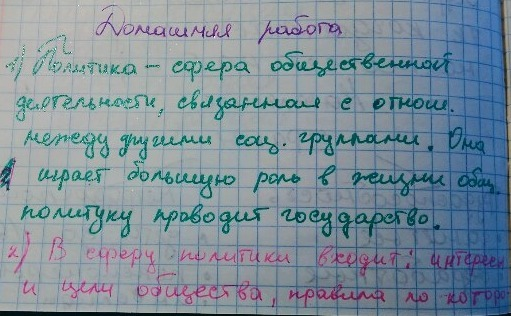 Домашняя работа
1) Политика – сфера общественной
деятельности, связанная с отнош.
между другими соц. группами. Она
играет большую роль в жизни общ.
политику проводит государство.
2) В сферу политики входит: интересы
и цели общества, правила по которо